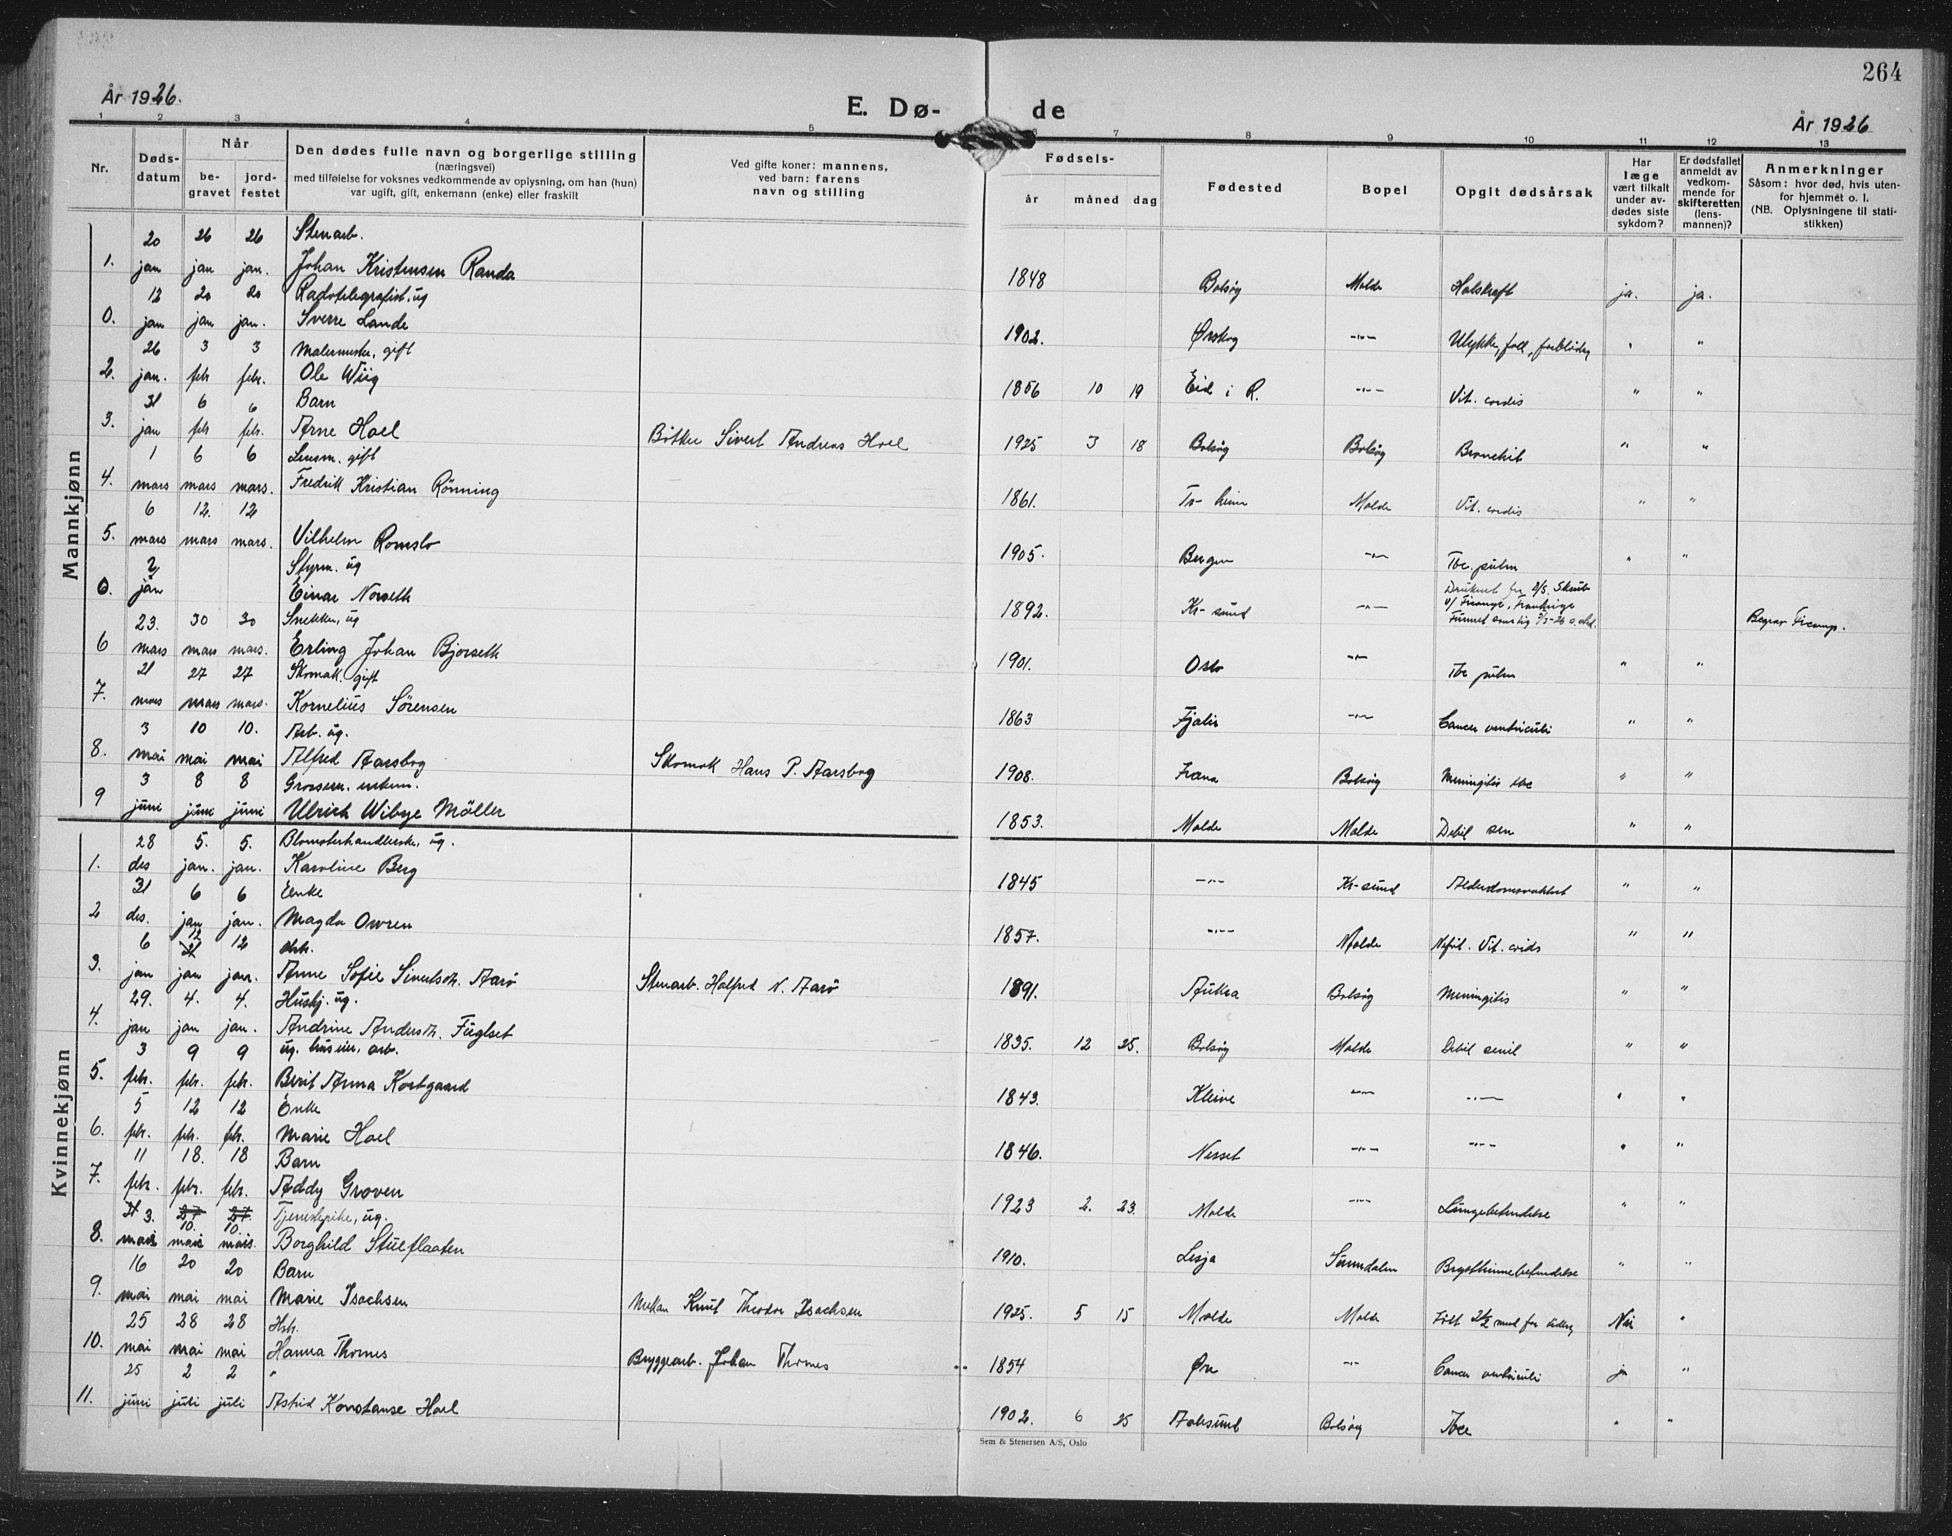 264
År 1926.
E. Dø-
de
År 1926
1 2 3 4 5 6 7 8 9 10 11 12 13
Nr.
Døds-
datum
Når
be-
gravet
jord-
festet
Den dødes fulle navn og borgerlige stilling
(næringsvei)
med tilføielse for voksnes vedkommende av oplysning, om han (hun)
var ugift, gift, enkemann (enke) eller fraskilt
Ved gifte koner: mannens,
ved barn: farens
navn og stilling
Fødsels-
år måned dag
Fødested
Bopel
Opgit dødsårsak
Har
læge
vært tilkalt
under av-
dødes siste
sykdom?
Er dødsfallet
anmeldt av
vedkom-
mende for
skifteretten
(lens-
mannen)?
Anmerkninger
Såsom: hvor død, hvis uten-
for hjemmet o. l.
(NB. Oplysningene til stati-
stikken)
Mannkjønn
20 26 26 Stenarb.
1. jan jan jan. Johan Kristensen Randa 1848 Bolsøy Molde ja. ja.
12 20 20 Radiotelegrafist. ug
0. jan jan jan. Sverre Lande 1902. Ørskog -"- Ulykke, fall, " "
26 3 3 Malermester, gift
2. jan. febr febr. Ole Wiig 1856 10 19 Eid i R. -"- Vit. cordis " "
31 6 6 Barn
3. jan febr. febr. Arne Hoel Bøtker Sivert Andreas Hoel 1925 3 18 Bolsøy Bolsøy Bronchit " "
1 6 6 Lensm. gift
4. mars mars mars. Fredrik Kristian Rönning 1861. Tr-heim Molde Vit. cordis " "
6 12. 12
5. mars mars mars. Vilhelm Romslo 1905. Bergen -"- Tbc. pulm " "
2 Styrm. ug
0. jan Einar Norseth 1892. Kr-sund -"- Druknet fra D/S. Skule
v/ Frankrige
23. 30 30 Snekker, ug
6 mars mars mars. Erling Johan Bjorseth 1901. Oslo -"- Tbc pulm " "
21 27 27 Skomak. gift
7. mars mars mars. Kornelius Sørensen 1863 Fjaler -"- Cancer ventriculi " "
3 10 10. Arb. ug.
8. mai mai mai Alfred Aarsbog Skomak Hans P. Aarsbog 1908. Fræna Bolsøy Meningitis tbc " "
3 8 8 Grosserer. enkem.
9 juni juni juni Ulrich Wibye Möller 1853. Molde Molde Debil sen " "
Kvinnekjønn
28 5. 5. Blomsterhandlerske, ug.
1. des jan. jan. Karoline Berg 1845 -"- Kr-sund " "
31 6 6 Enke
2 des. jan jan. Magda Owren 1857. -"- Molde Nefrit. Vit. cordis " "
6 12 12 Hstr.
3. jan jan jan. Anne Sofie Sivertsdtr. Aarø Stenarb. Halfred N. Aarø 1891. Aukra Bolsøy Meningitis " "
29. 4. 4. Hushj. ug.
4. jan jan jan. Andrine Andersdtr. Fuglset 1835. 12 25. Bolsøy Molde Debil senil " "
3 9 9 ug. huseier, arb.
5. febr. febr. febr. Berit Anna Kortgaard 1843. Kleive -"- -"- " "
5 12 12 Enke
6. febr. febr. febr. Marie Hoel 1846. Nesset -"- -"- " "
11 18. 18 Barn
7. febr. febr. febr. Addy Groven 1923 2. 23. Molde -"- Lungebetendelse " "
3. 10. 10. Tjenestepike, ug.
8. mai mai mai. Borghild Stueflaaten 1910. Lesja Sunndalen Brysthinnebetendelse " "
16 20 20 Barn
9. mai mai mai Marie Isachsen Mekan Knut Theodor Isachsen 1925. 5 15 Molde Molde Født 2½ mnd for tidlig Nei "
25 28 28 Hstr.
10. mai mai mai Hanna Thornes Bryggearb. Johan Thornes 1854 Øre -"- Cancer ventriculi ja "
25 2 2 "
11. juni juli juli Astrid Konstanse Hoel 1902. 6 25 Aalesund Bolsøy Tbc " "
Sem & Stenersen A/S, Oslo